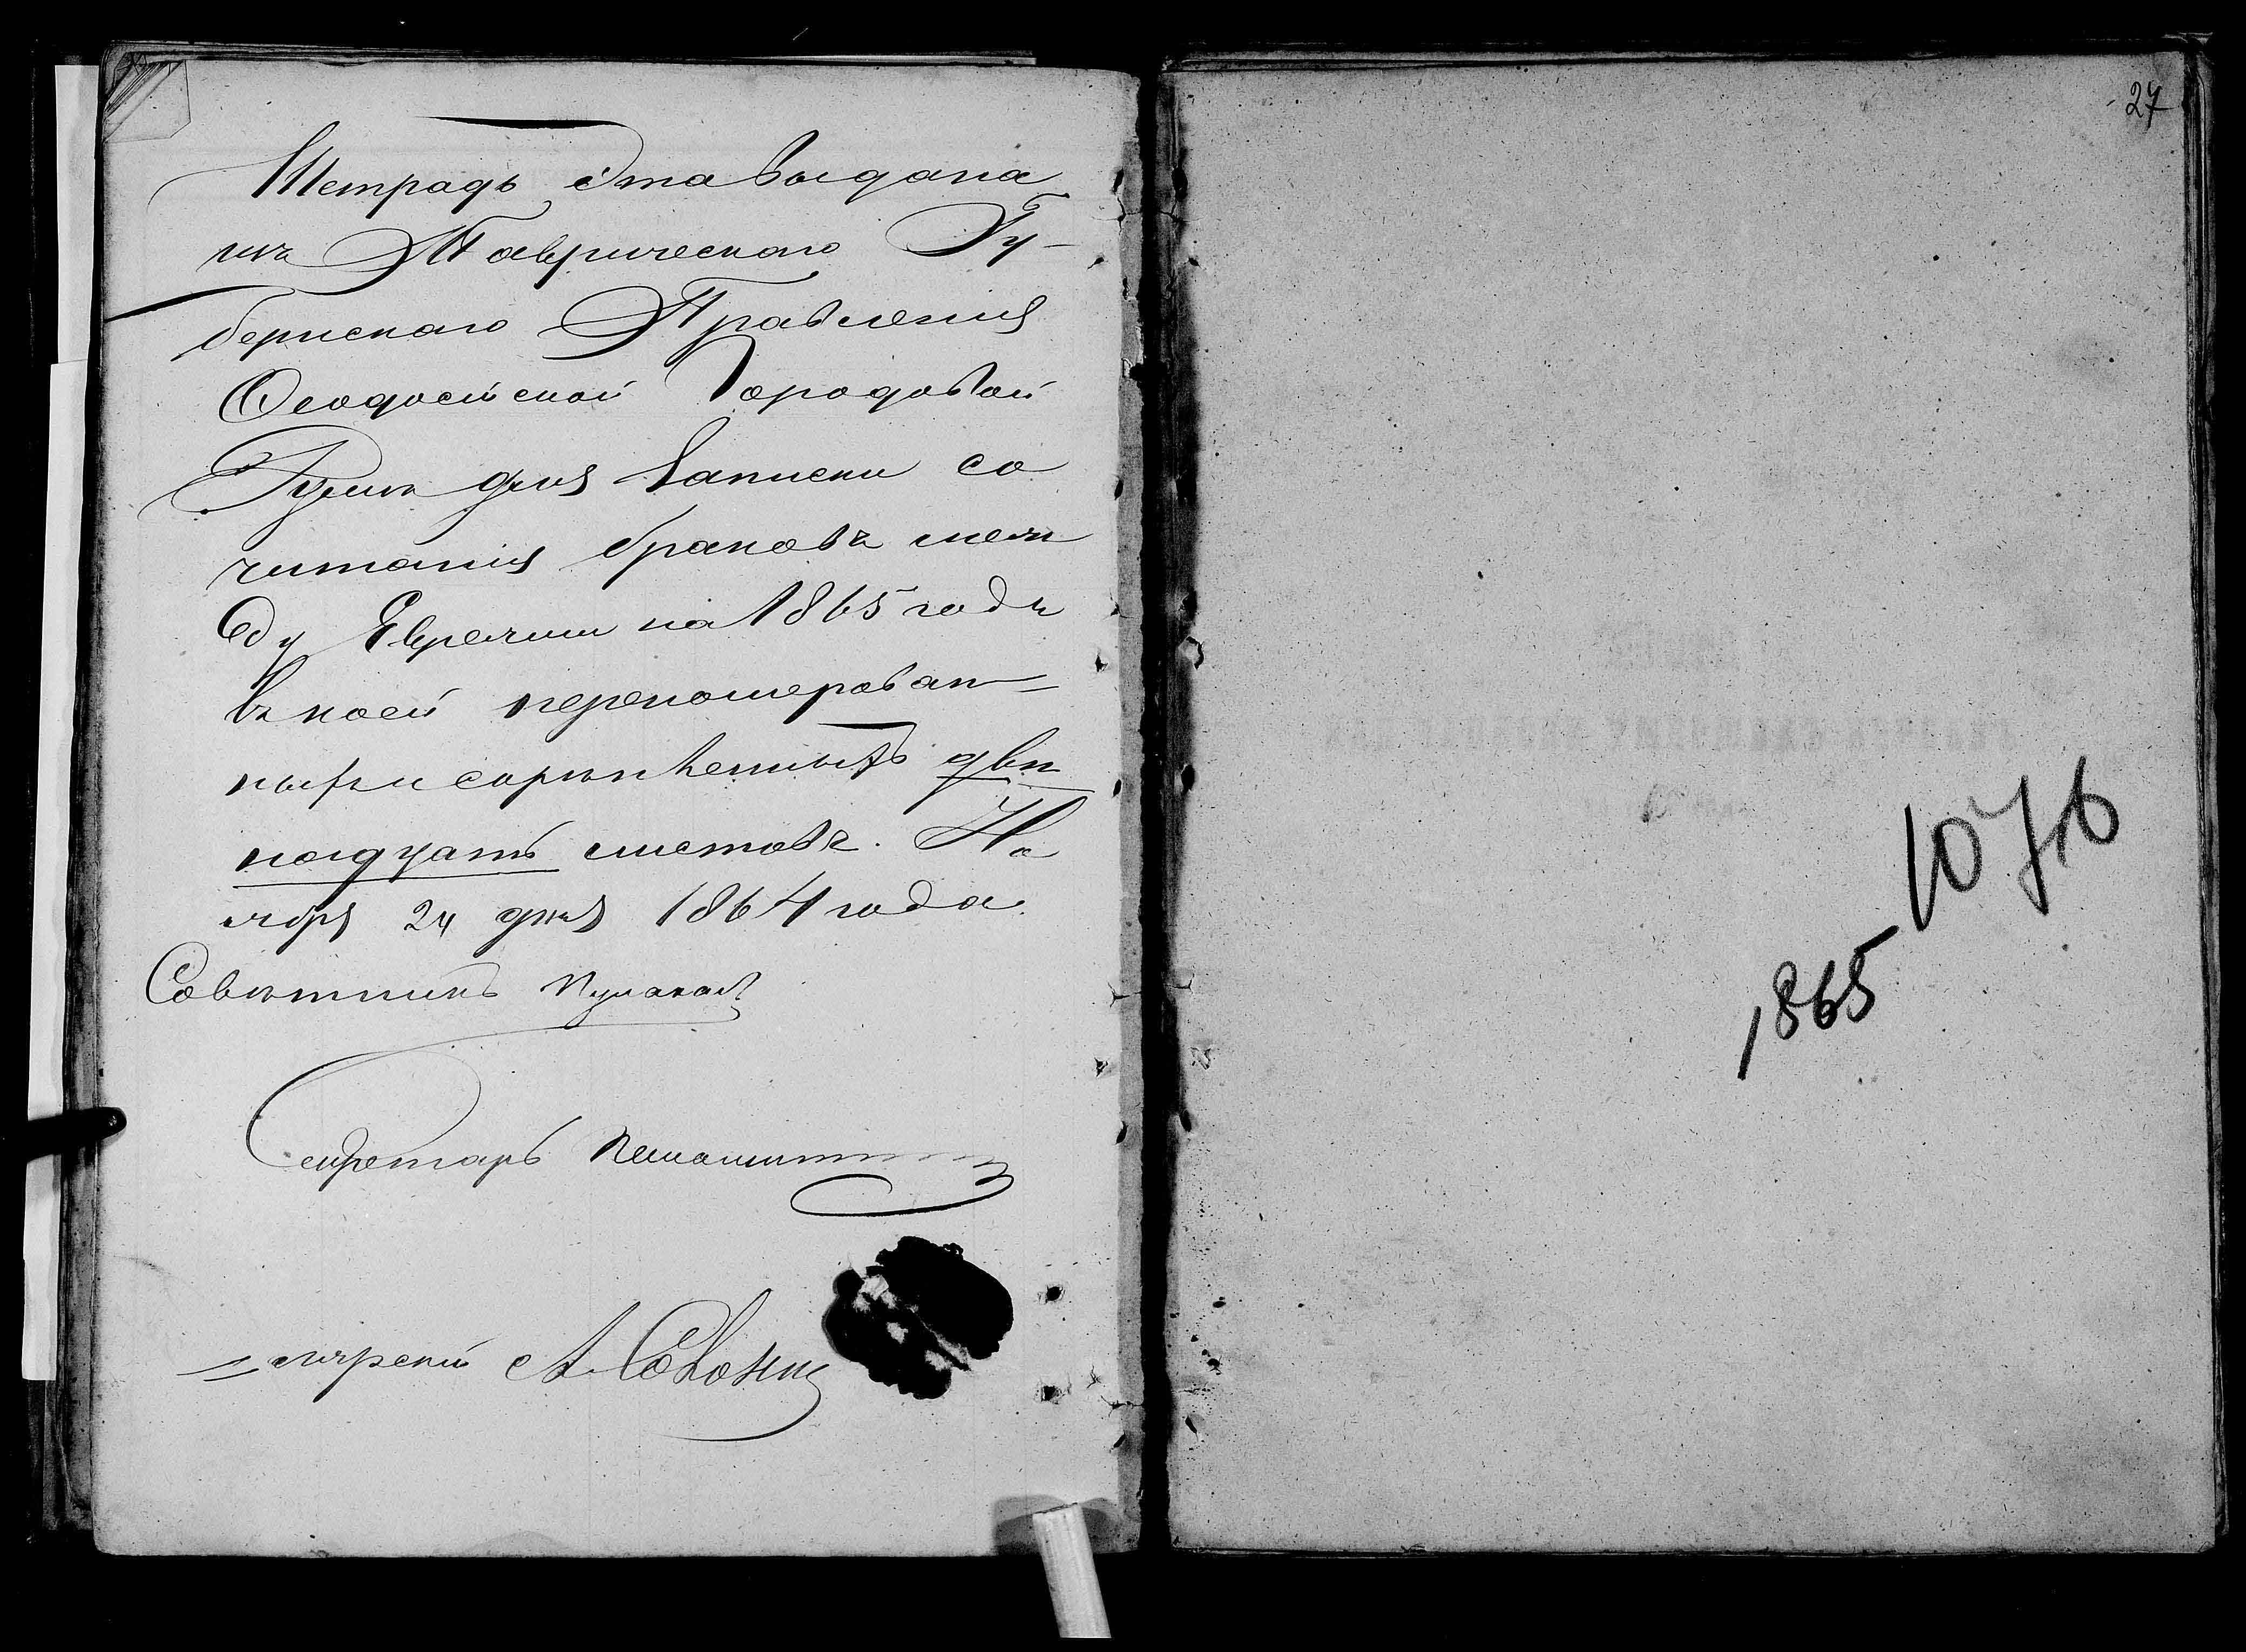 Тетрадь эта выдана
изъ Таврическаго Гу-
бернскаго Правления
Феодосийской Городовой
Думѣ для записки со
читания браковъ меж
ду Евреями на 1865 годъ
въ коей перенумерован-
ныхъ и скрѣпленныхъ двѣ
надцать листовъ. Но
ября 24 дня 1864 года.
Совѣтникъ
Секретарь
27
1076
1865